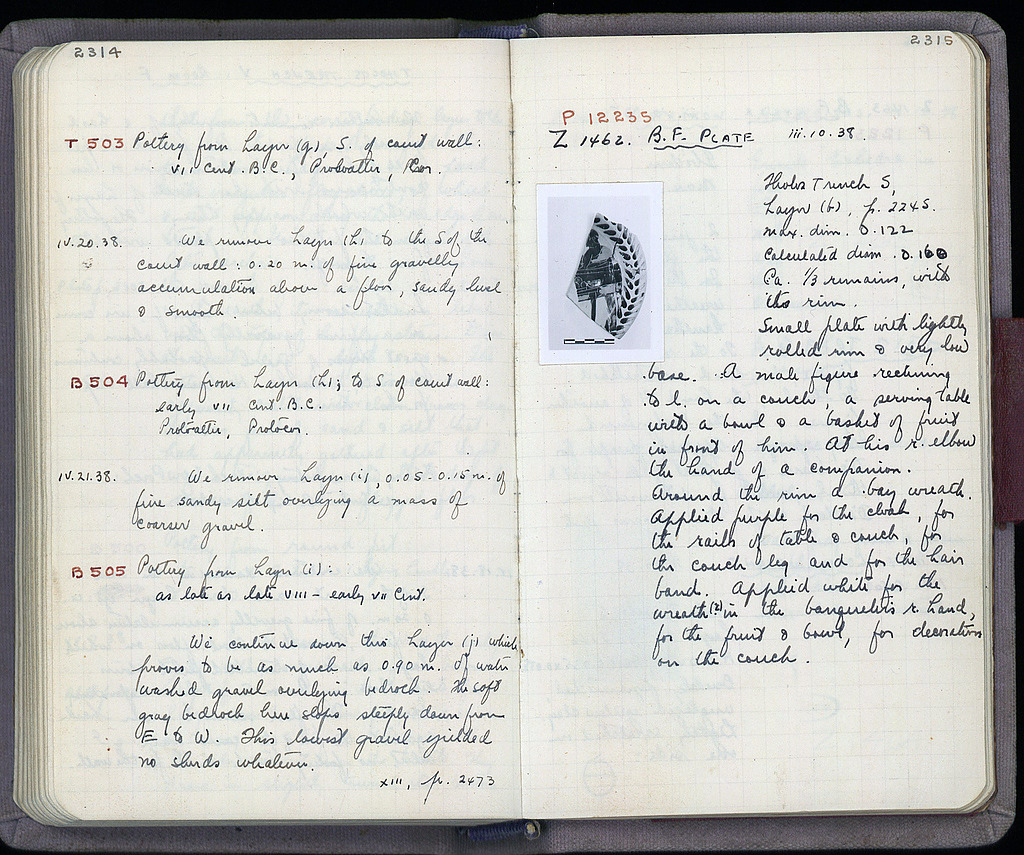 2314
T 503 Pottery from Layer (g), S. of court wall:
VII cent. B.C., Protoattic, Cor.
IV.20.38. We remove Layer (h) to the S of the
court wall: 0.20 m. of fine gravelly
accumulation above a floor, sandy but
& smooth.
B 504 Pottery from Layer (h); to S of court wall:
early VII cent. B.C.
Protoattic, Protocor.
IV.21.38. We remove Layer (i), 0.05-0.15 m. of
fine sandy silt overlying a mass of
coarser gravel.
B 505 Pottery from Layer (i):
as late as late VIII - early VII cent.
We continue down thru Layer (j) which
proves to be as much as 0.90 m. of water
washed gravel overlying bedrock. The soft
gray bedrock here slopes steeply down from
E to W. This lowest gravel yielded
no sherds whatever.
XIII, p. 2473
2315
P 12235
Z 1462. B.F. PLATE iii.10.38
Tholos Trench S,
Layer (b), p. 2245.
Max. dim. 0.122
Calculated diam. 0.160
Ca. 1/3 remains, with
the rim.
Small plate with lightly
rolled rim & very low
base. A male figure reclining
to l. on a couch, a serving table
with a bowl & a basket of fruit
in front of him. At his r. elbow
the hand of a companion.
Around the rim a bay wreath.
Applied purple for the cloak, for
the rails of table & couch, for
the couch leg and for the hair
band. Applied white for the
wreath (?) in the banqueter's r. hand,
for the fruit & bowl, for decoration
on the couch.